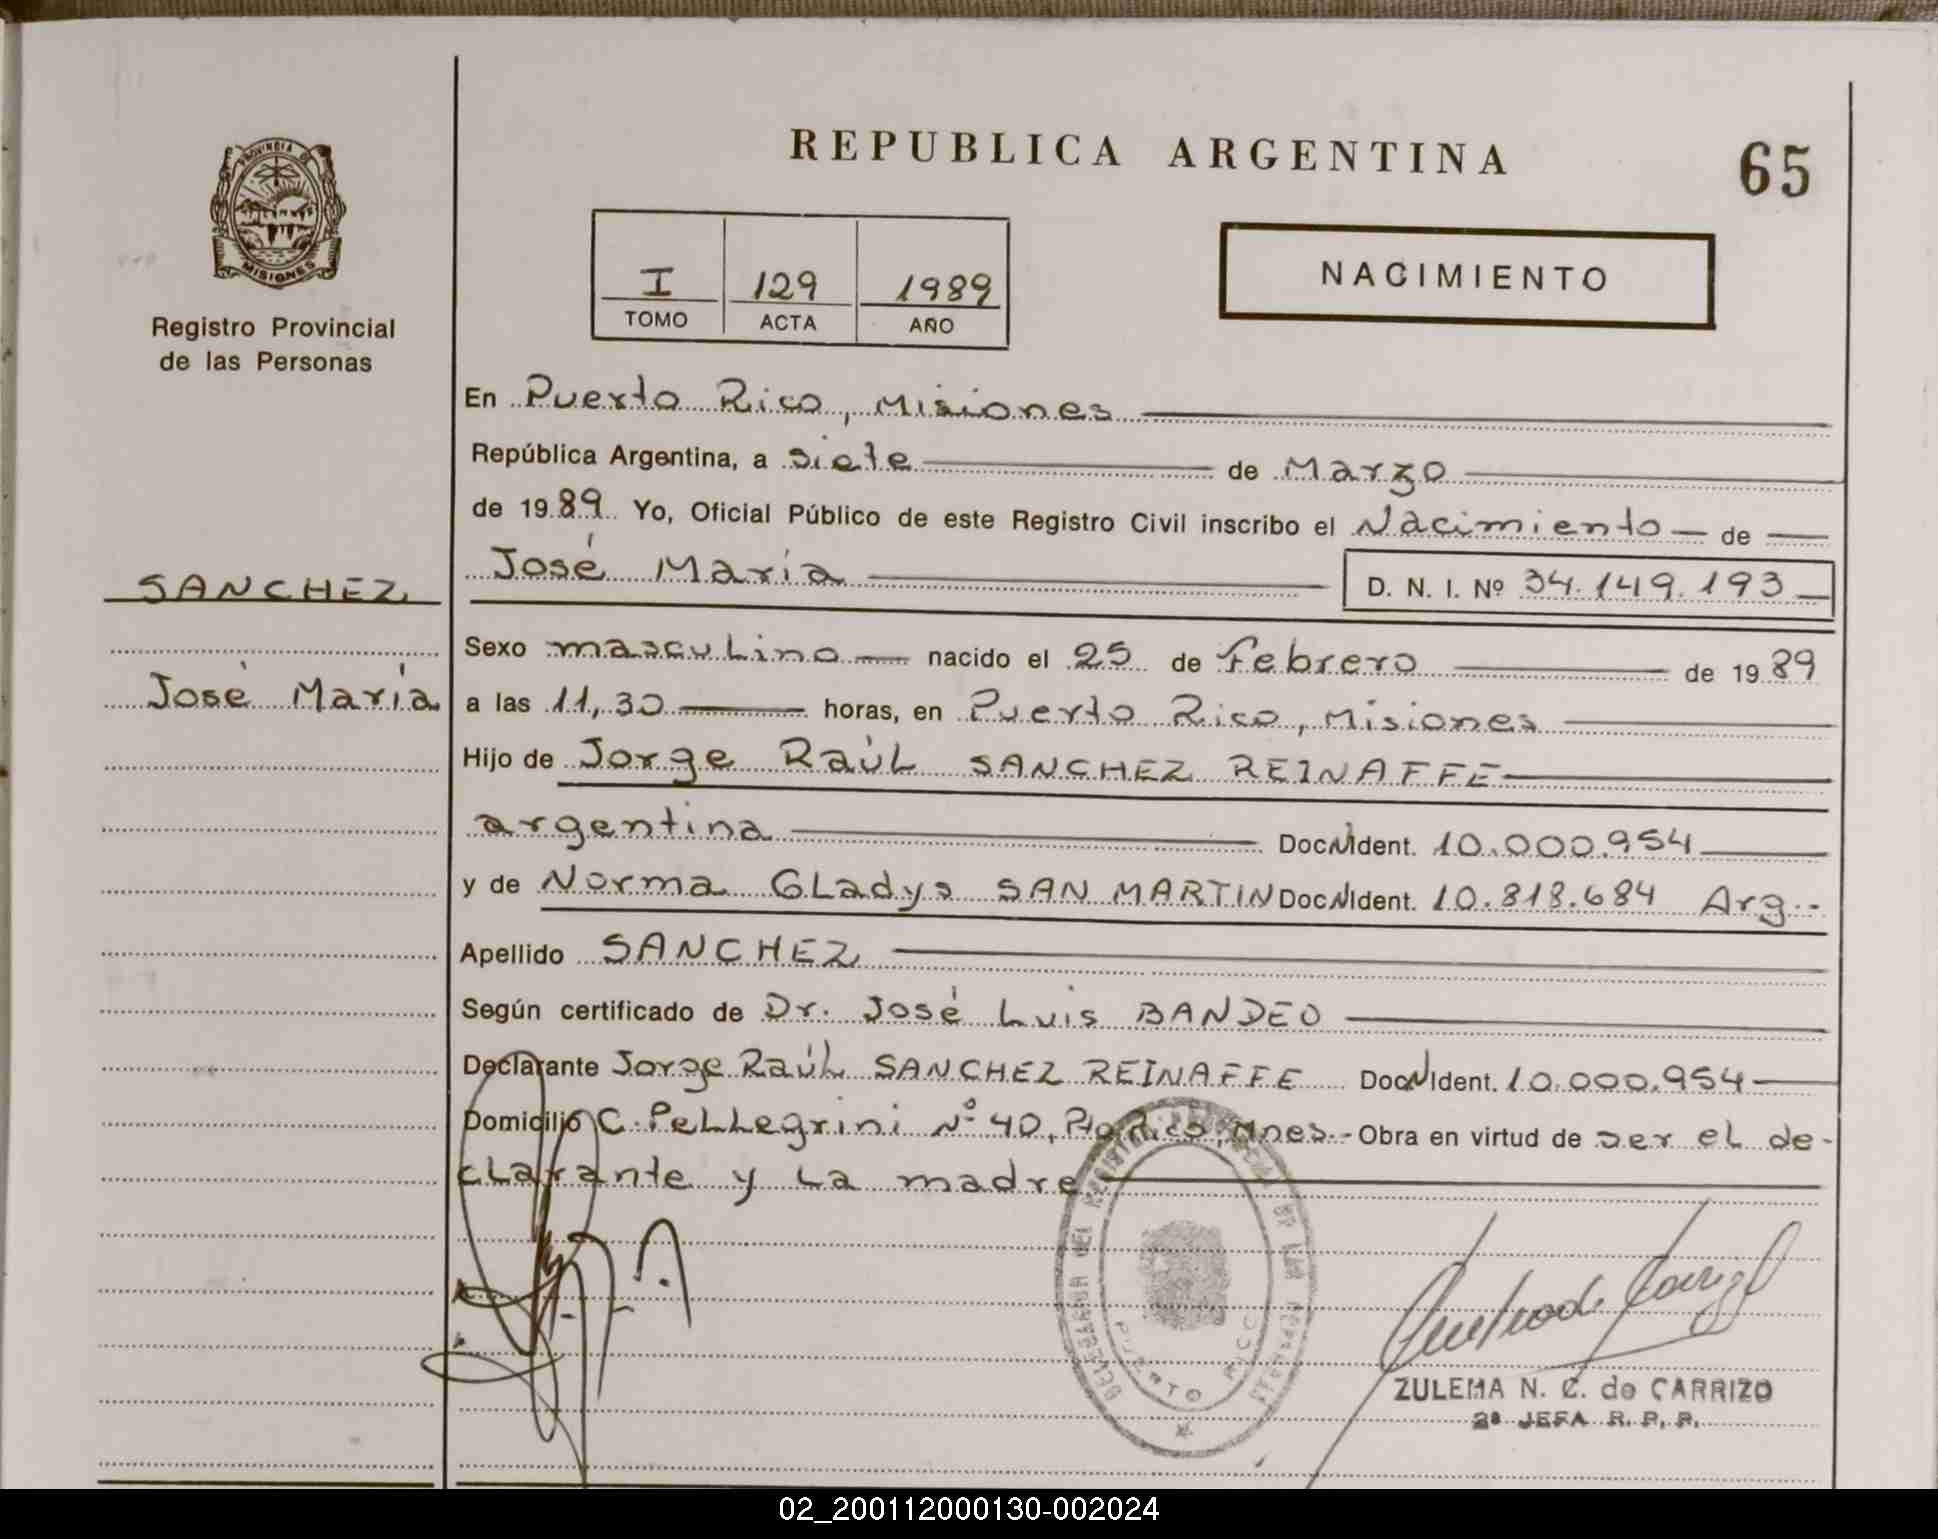 REPUBLICA ARGENTINA
65
PROVINCIA DE
MISIONES
Registro Provincial
de las Personas
I 129 1989
TOMO ACTA AÑO
NACIMIENTO
En Puerto Rico, Misiones
República Argentina, a siete de Marzo
de 1989 Yo, Oficial Público de este Registro Civil inscribo el Nacimiento de
José María D. N. I. Nº 34.149.193
SANCHEZ
José María
Sexo masculino nacido el 25 de Febrero de 1989
a las 11,30 horas, en Puerto Rico, Misiones
Hijo de Jorge Raúl SANCHEZ REINAFFE
argentina Doc.N.Ident. 10.000.954
y de Norma Gladys SAN MARTIN Doc.N.Ident. 10.818.684 Arg.-
Apellido SANCHEZ
Según certificado de Dr. José Luis BANDEO
Declarante Jorge Raúl SANCHEZ REINAFFE Doc.N.Ident. 10.000.954
Domicilio C. Pellegrini Nº 40, Pto. Rico, Mnes.- Obra en virtud de ser el de-
clarante y la madre
PUERTO RICO
ZULEMA N. C. de CARRIZO
2ª JEFA R. P. P.
02_200112000130-002024